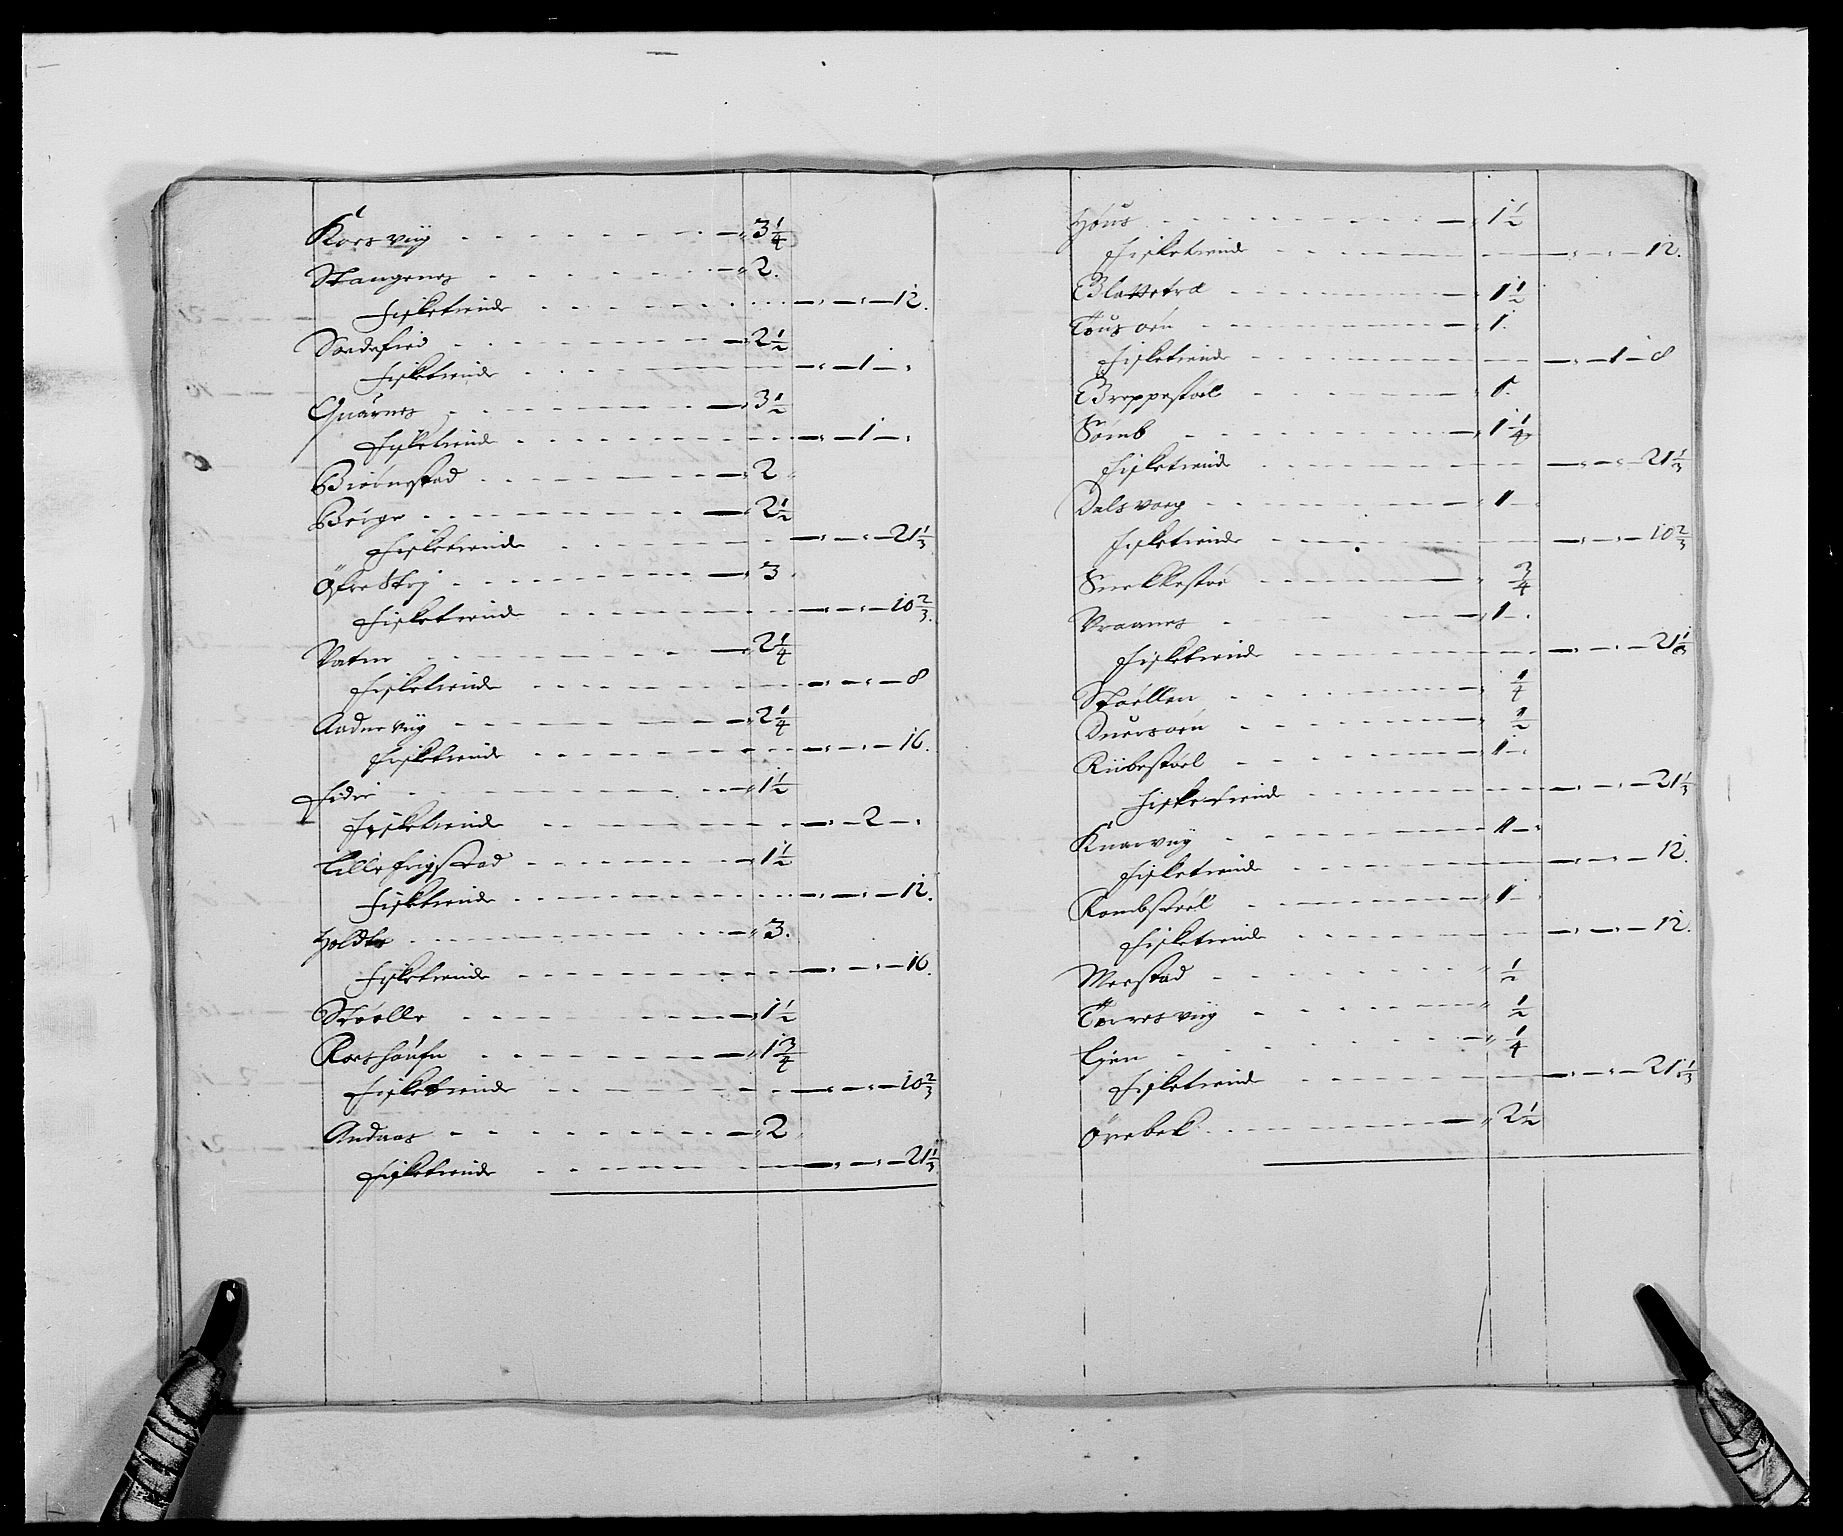 Korsviig - - - - - - 3 1/4
Stangenes - - - - - - 2.
Fisketiende - - - - - - 12.
Sandefied - - - - - - 2 1/2
Fisketiende - - - - - - 1 -
Quarnes - - - - - - 3 1/2
Fisketiende - - - - - - 1 -
Biørnestad - - - - - - 2
Beige - - - - - - 2 1/2
Fisketiende - - - - - - 21 1/3
Øfre Strej - - - - - - 3
Fisketiende - - - - - - 10 2/3.
Vatne - - - - - - 2 1/4
Fisketiende - - - - - - 8
Andneviig - - - - - - 2 1/4
Fisketiende - - - - - - 16.
Fidie - - - - - - 1 1/2
Fisketiende - - - - - - 2 -
Lille Frigstad - - - - - - 1 1/2
Fisketiende - - - - - - 12.
Holdte - - - - - - 3.
Fisketiende - - - - - - 16.
Støelle - - - - - - 1 1/2
Korshaufn - - - - - - 1 3/4
Fisketiende - - - - - - 10 2/3
Andaas - - - - - - 2
Fisketiende - - - - - - 21 1/3
Høus - - - - - - 1 1/2
Fisketiende - - - - - - 12.
Blattetræ - - - - - - 1 1/2
Tousøen - - - - - - 1.
Fisketiende - - - - - - 1 - 8
Breppestoel - - - - - - 1.
Sømb - - - - - - 1 1/4
Fisketiende - - - - - - 21 1/3
Dalsvaag - - - - - - 1 -
Fisketiende - - - - - - 10 2/3
Snekkestøe - - - - - - 3/4
Vraanes - - - - - - 1 -
Fisketiende - - - - - - 21 1/3
Støellen - - - - - - 1/4
Duersøen - - - - - - 1/2
Riibestøel - - - - - - 1 -
Fisketiende - - - - - - 21 1/3
Knarviig - - - - - - 1 -
Fisketiende - - - - - - 12.
Rombstøel - - - - - - 1 -
Fisketiende - - - - - - 12.
Meestad - - - - - - 1/2
Torresviig - - - - - - 1/2
Ejen - - - - - - 1/4
Fisketiende - - - - - - 21 1/3
Ørebek - - - - - - 2 1/2